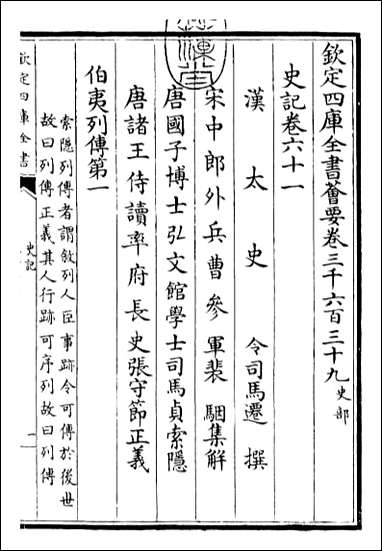 欽定四庫全書薈要卷三千六百三十九史部
史記卷六十一
漢太史令司馬遷撰
宋中郎外兵曹參軍裴駰集解
唐國子博士弘文館學士司馬貞索隱
唐諸王侍讀率府長史張守節正義
伯夷列傳第一
索隱列傳者謂敘列人臣事跡令可傳於後世
故曰列傳正義其人行跡可序列故曰列傳
欽定四庫全書
史記
一